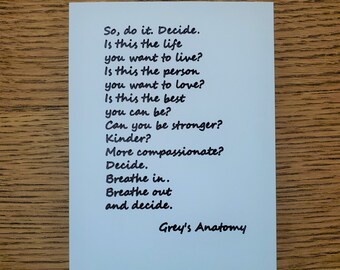 So, do it. Decide.
Is this the life
you want to live?
Is this the person
you want to love?
Is this the best
you can be?
Can you be stronger?
Kinder?
More compassionate?
Decide.
Breathe in.
Breathe out
and decide.
Grey's Anatomy